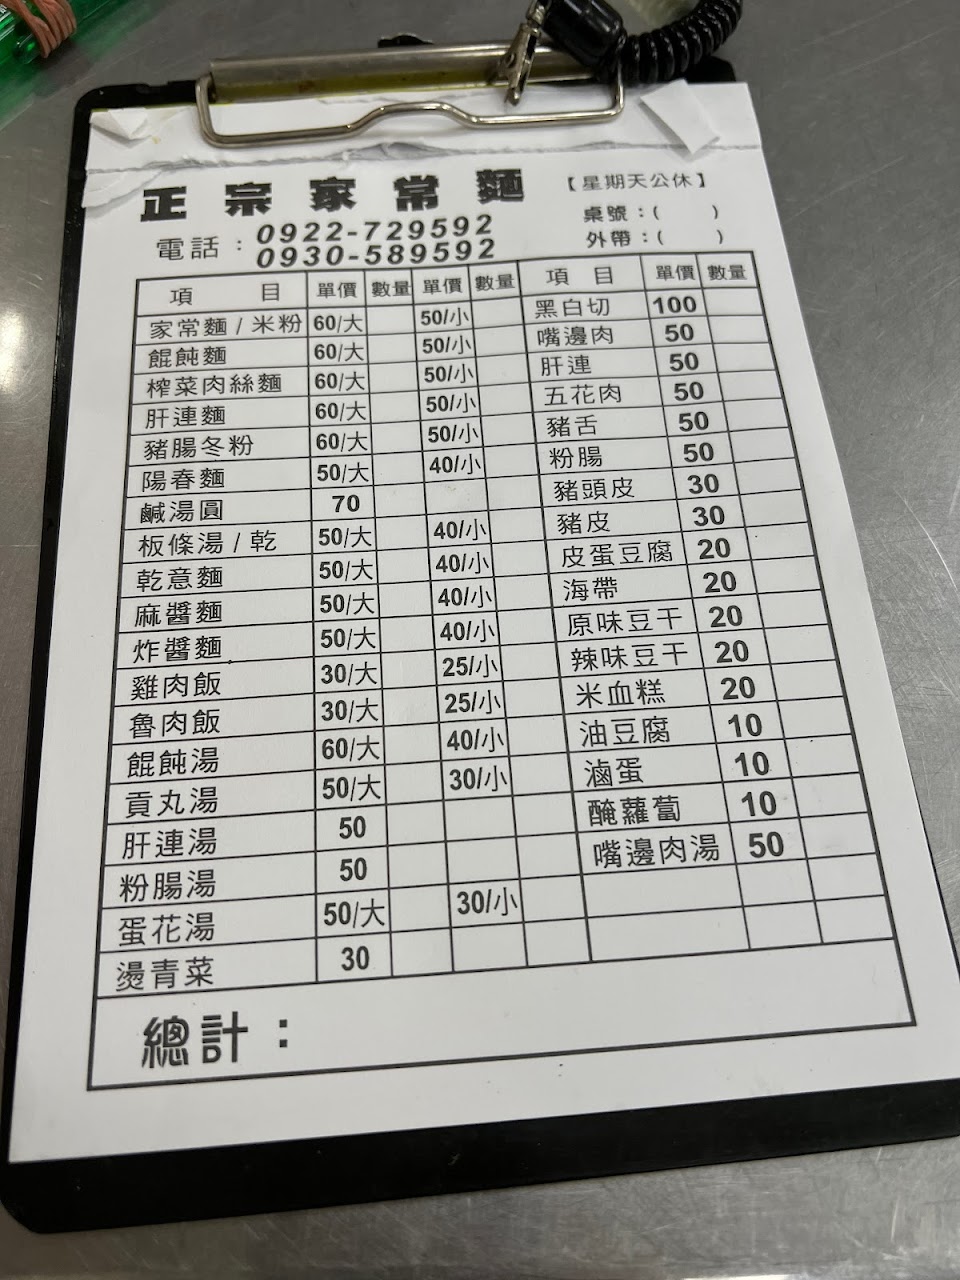 正宗家常麵
【星期天公休】
電話：0922-729592
0930-589592
桌號：(　)
外帶：(　)
項目 單價 數量 單價 數量 項目 單價 數量
家常麵/米粉 60/大 50/小 黑白切 100
餛飩麵 60/大 50/小 嘴邊肉 50
榨菜肉絲麵 60/大 50/小 肝連 50
肝連麵 60/大 50/小 五花肉 50
豬腸冬粉 60/大 50/小 豬舌 50
陽春麵 50/大 40/小 粉腸 50
鹹湯圓 70 豬頭皮 30
板條湯/乾 50/大 40/小 豬皮 30
乾意麵 50/大 40/小 皮蛋豆腐 20
麻醬麵 50/大 40/小 海帶 20
炸醬麵 50/大 40/小 原味豆干 20
雞肉飯 30/大 25/小 辣味豆干 20
魯肉飯 30/大 25/小 米血糕 20
餛飩湯 60/大 40/小 油豆腐 10
貢丸湯 50/大 30/小 滷蛋 10
肝連湯 50 醃蘿蔔 10
粉腸湯 50 嘴邊肉湯 50
蛋花湯 50/大 30/小
燙青菜 30
總計：